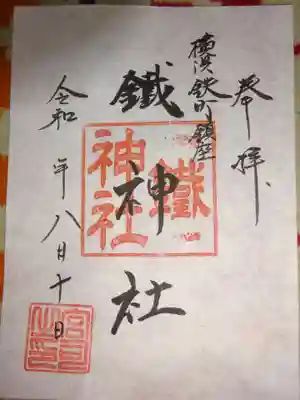 奉拝
横浜鉄町鎮座
鐵神社
令和 年八月十日
鐵神社
宮司之印